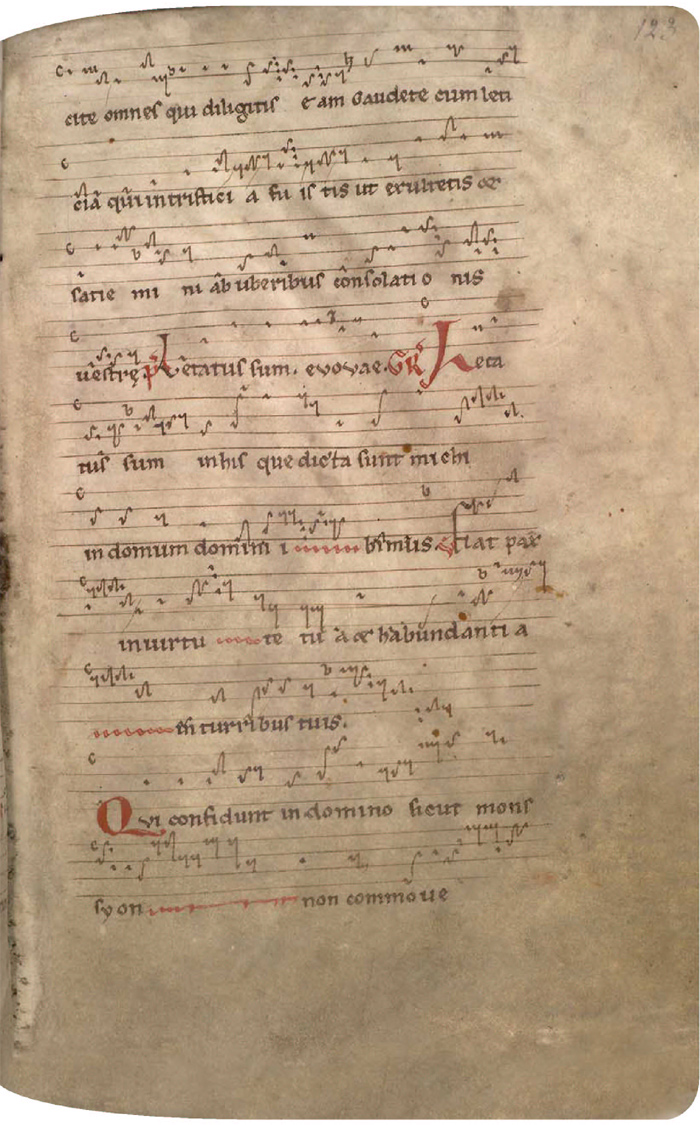 123
cite omnes qui diligitis eam Gaudete cum leti
cia qui in tristici a fu is tis ut exultetis &
satie mi ni ab uberibus consolati o nis
uestrę. Ps Letatus sum. evovae. GR Leta
tus sum in his que dicta sunt michi
in domum domini i bimus V Fiat pax
in uirtu te tu a & habundanti a
in turribus tuis.
Qvi confidunt in domino sicut mons
syon non commoue